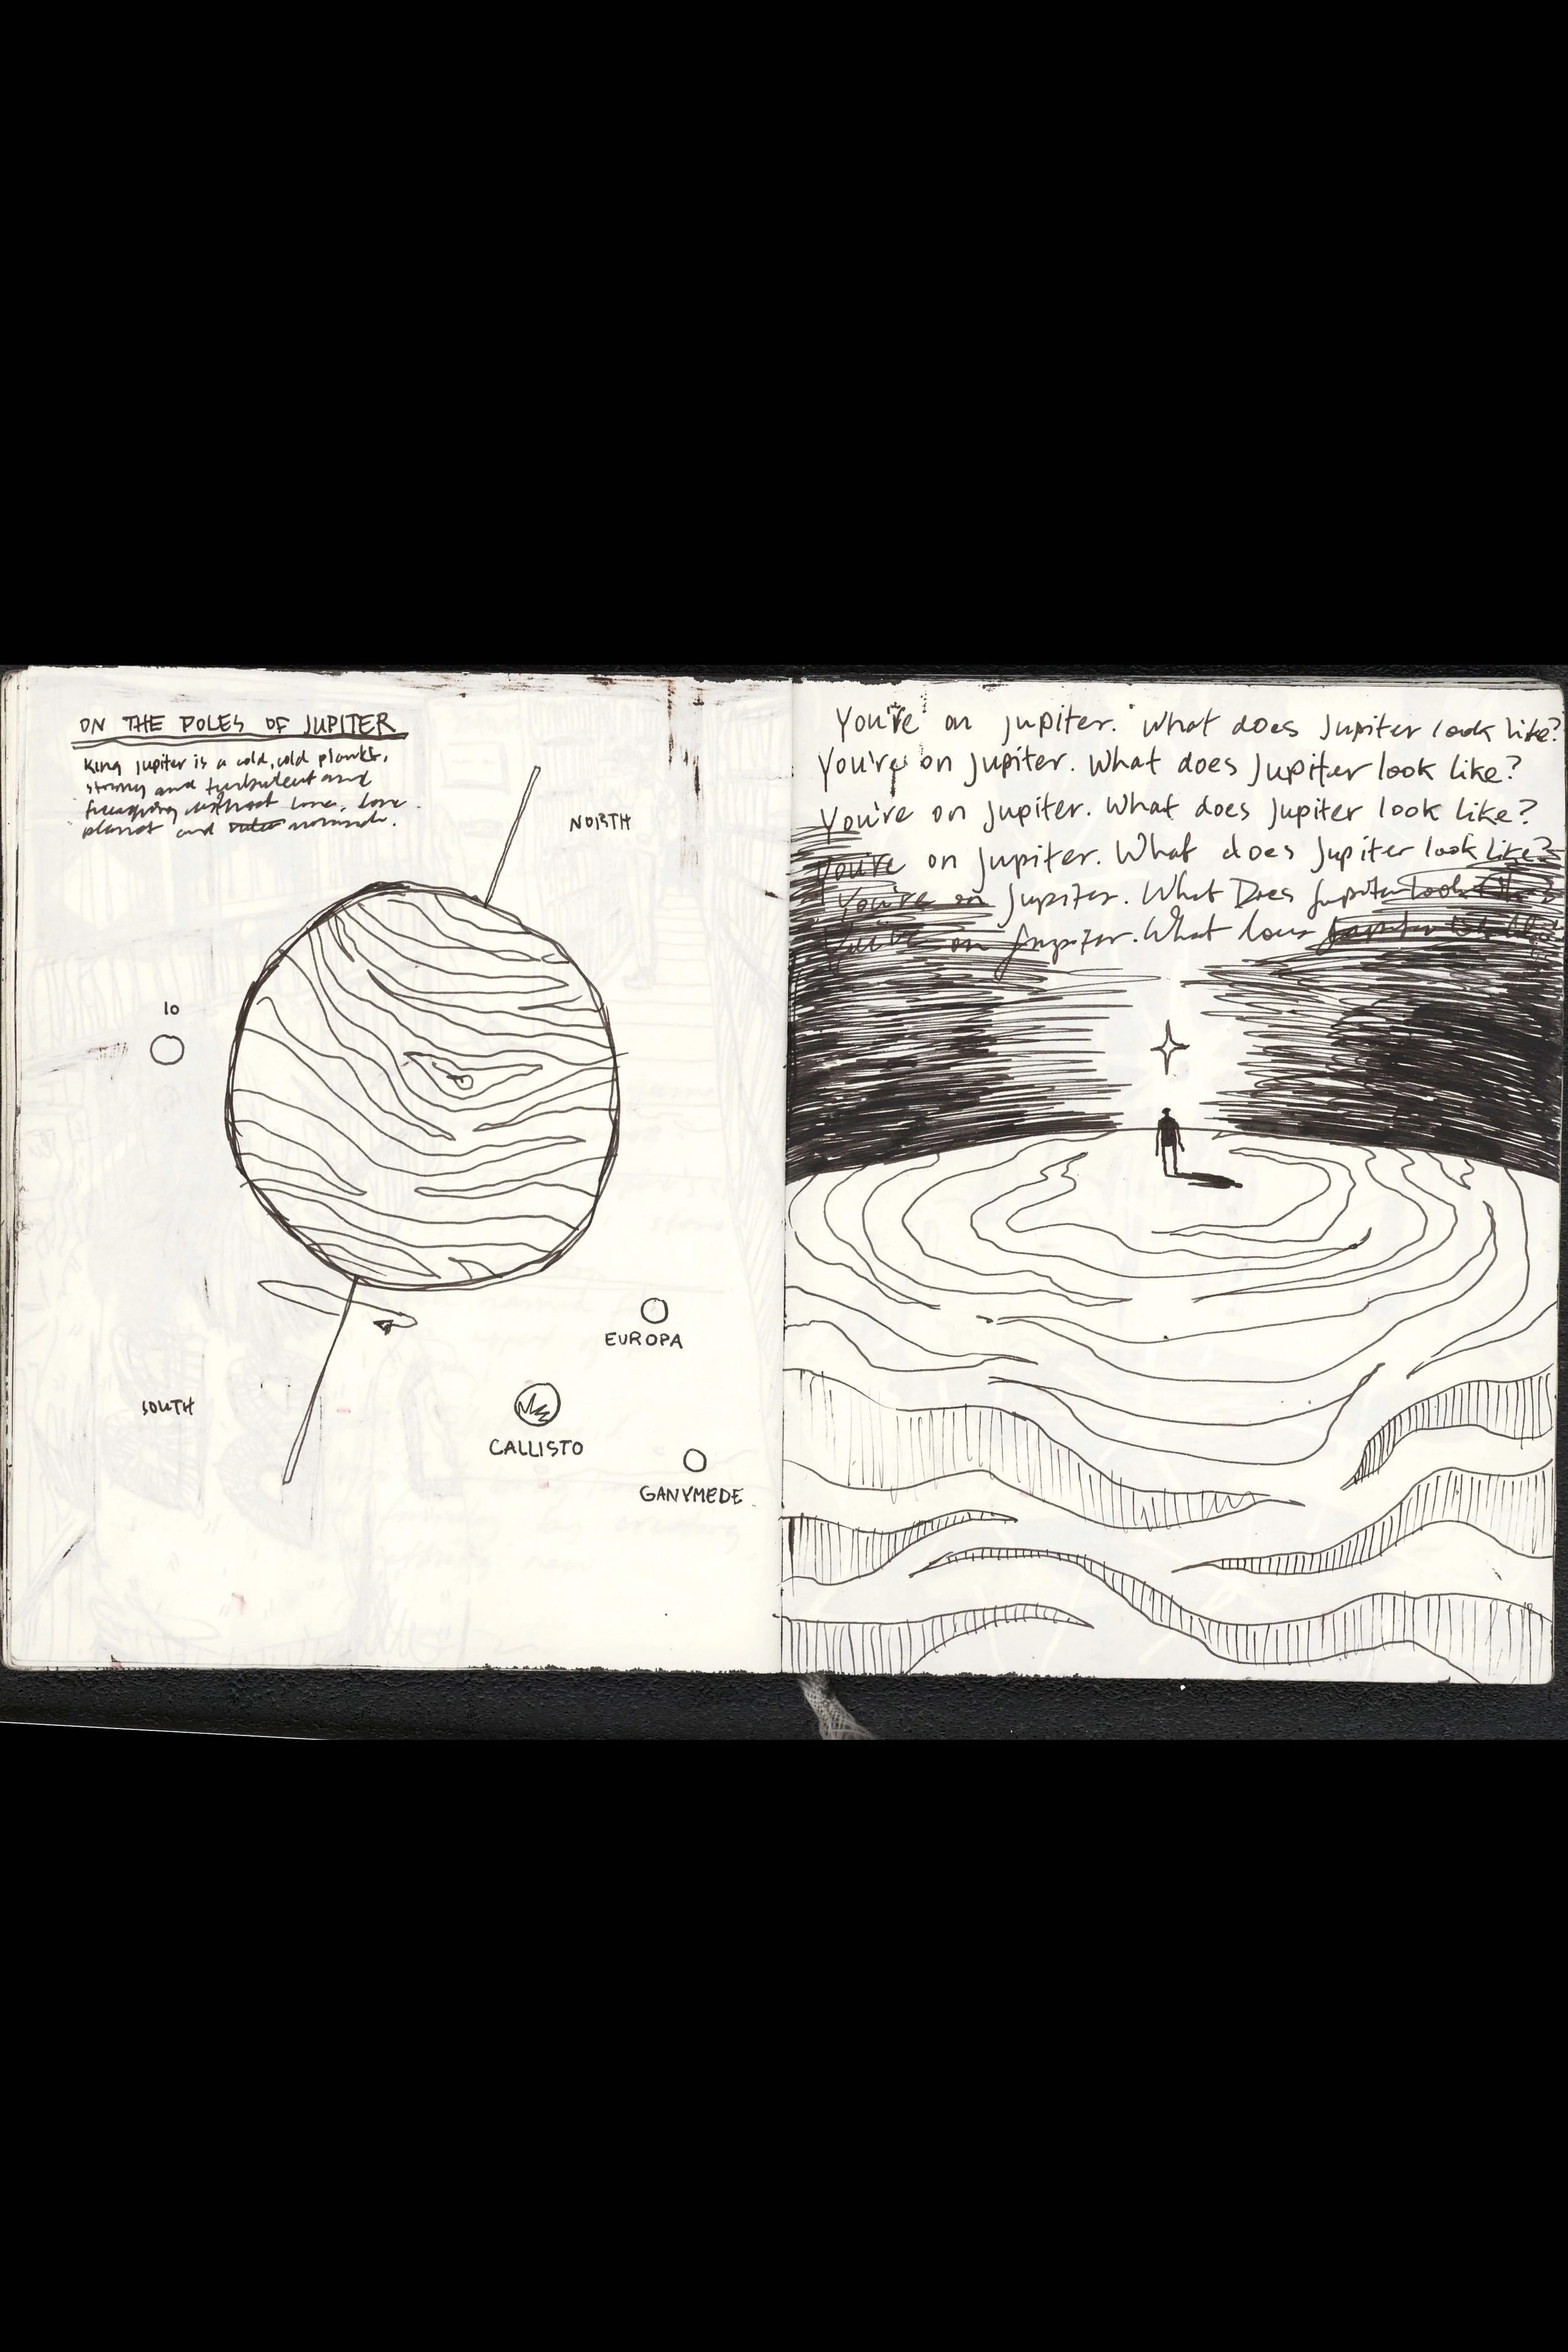 ON THE POLES OF JUPITER
King Jupiter is a cold, cold planet,
stormy and turbulent and
without
planet and
NORTH
IO
EUROPA
SOUTH
CALLISTO
GANYMEDE
You're on Jupiter. What does Jupiter look like?
You're on Jupiter. What does Jupiter look like?
You're on Jupiter. What does Jupiter look like?
You're on Jupiter. What does Jupiter look like?
You're on Jupiter. What Does Jupiter look like?
You're on Jupiter. What